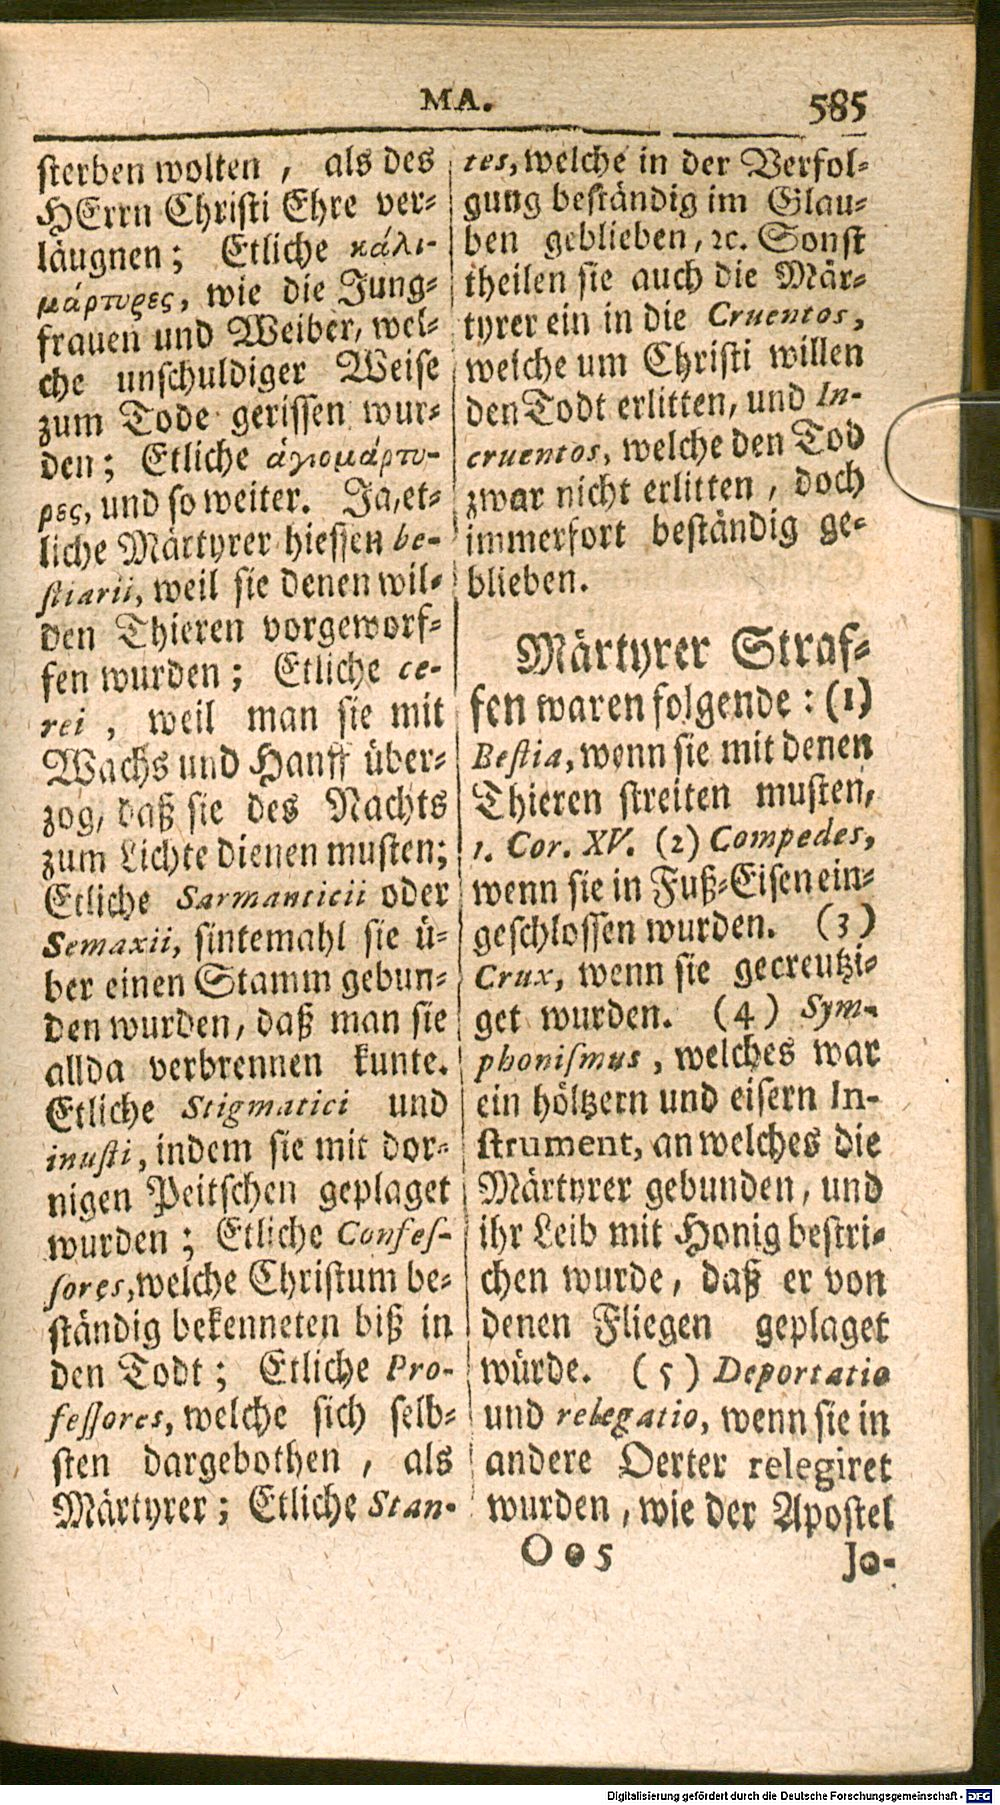 MA. 585
sterben wolten, als des
HErrn Christi Ehre ver-
läugnen; Etliche κάλι-
μάρτυρες, wie die Jung-
frauen und Weiber, wel-
che unschuldiger Weise
zum Tode gerissen wur-
den; Etliche ἁγιομάρτυ-
ρες, und so weiter. Ja, et-
liche Märtyrer hiessen be-
stiarii, weil sie denen wil-
den Thieren vorgeworf-
fen wurden; Etliche ce-
rei, weil man sie mit
Wachs und Hanff über-
zog, daß sie des Nachts
zum Lichte dienen musten;
Etliche Sarmanticii oder
Semaxii, sintemahl sie ü-
ber einen Stamm gebun-
den wurden, daß man sie
allda verbrennen kunte.
Etliche Stigmatici und
inusti, indem sie mit dor-
nigen Peitschen geplaget
wurden; Etliche Confes-
sores, welche Christum be-
ständig bekenneten biß in
den Todt; Etliche Pro-
fessores, welche sich selb-
sten dargebothen, als
Märtyrer; Etliche Stan-
tes, welche in der Verfol-
gung beständig im Glau-
ben geblieben, ꝛc. Sonst
theilen sie auch die Mär-
tyrer ein in die Cruentos,
welche um Christi willen
den Todt erlitten, und In-
cruentos, welche den Tod
zwar nicht erlitten, doch
immerfort beständig ge-
blieben.
Märtyrer Straf-
fen waren folgende: (1)
Bestia, wenn sie mit denen
Thieren streiten musten,
1. Cor. XV. (2) Compedes,
wenn sie in Fuß-Eisen ein-
geschlossen wurden. (3)
Crux, wenn sie gecreutzi-
get wurden. (4) Sym-
phonismus, welches war
ein höltzern und eisern In-
strument, an welches die
Märtyrer gebunden, und
ihr Leib mit Honig bestri-
chen wurde, daß er von
denen Fliegen geplaget
würde. (5) Deportatio
und relegatio, wenn sie in
andere Oerter relegiret
wurden, wie der Apostel
Oo5 Jo-
Digitalisierung gefördert durch die Deutsche Forschungsgemeinschaft - DFG